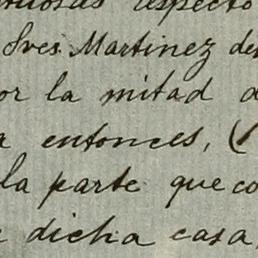 respecto
Sres. Martinez de
or la mitad d
a entonces, (
la parte que co
dicha casa,